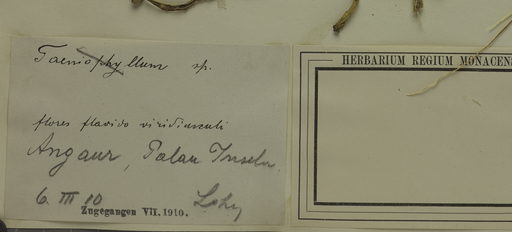 Taeniophyllum sp.
flores flavido viridiusculi
Angaur, Palau Inseln
6. III 10
Zugegangen VII. 1910.
HERBARIUM REGIUM MONACENS